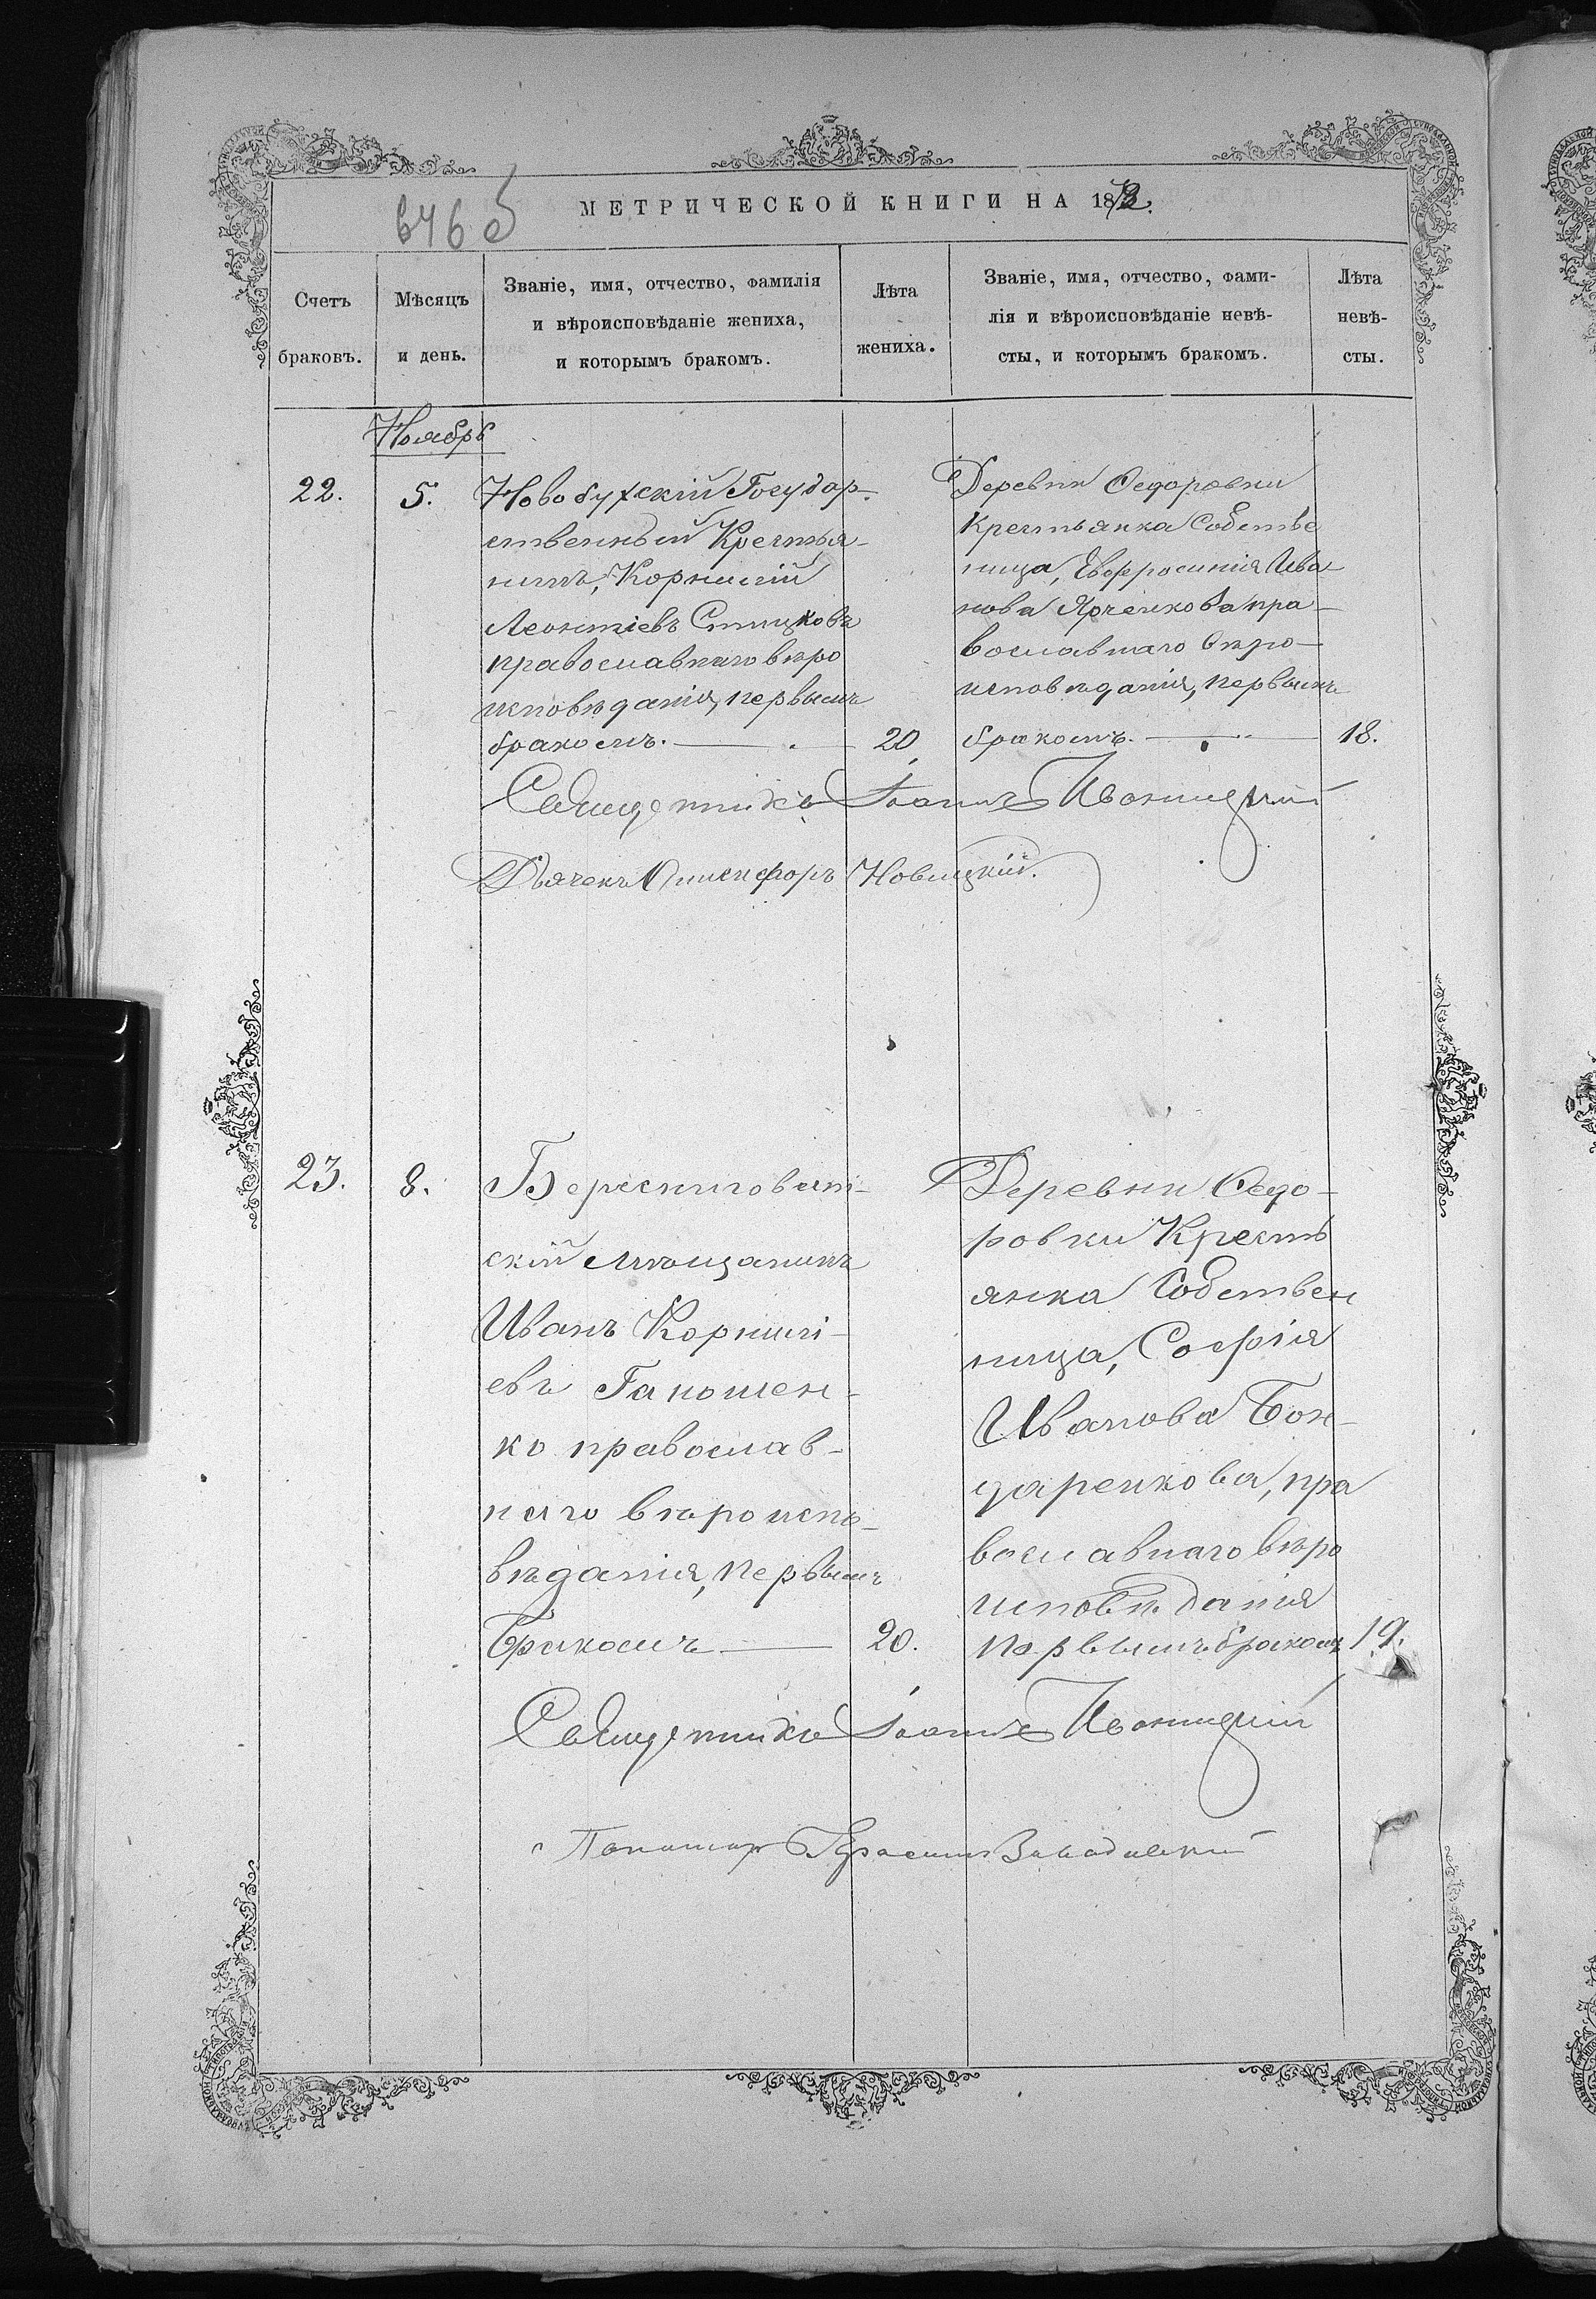 МЕТРИЧЕСКОЙ КНИГИ НА 1873.
Счетъ браковъ.
Мѣсяцъ и день.
Званіе, имя, отчество, фамилія
и вѣроисповѣданіе жениха,
и которымъ бракомъ.
Лѣта жениха.
Званіе, имя, отчество, фами-
лія и вѣроисповѣданіе невѣ-
сты, и которымъ бракомъ.
Лѣта невѣ-
сты.
Ноябрь
22.
5.
Новобугскій Государ-
ственный Крестья-
нинъ, Корнилій
Леонтіевъ
православнаго вѣро
исповѣданія, первымъ
бракомъ.
20.
Деревни Ѳедоровки
Крестьянка Собстве
ница, Евфросинія Ива-
нова Ярченкова пра-
вославнаго вѣро-
исповѣданія, первымъ
бракомъ.
18.
Священникъ Іоаннъ Ивоницкій
Дьячекъ Онисифоръ Новицкій.
23.
8.
Береснигoват-
скій мѣщанинъ
Иванъ Корнилі-
евъ Гапошен-
ко православ-
наго вѣроиспо-
вѣданія, первымъ
Бракомъ
20.
Деревни Ѳедо-
ровки Кресть
янка Собствен
ница, Софія
Иванова Бон-
даренкова, пра
вославнаго вѣро
исповѣданія
первымъ бракомъ
19.
Священникъ Іоаннъ Ивоницкій
Пономарь Герасимъ Завадовскій